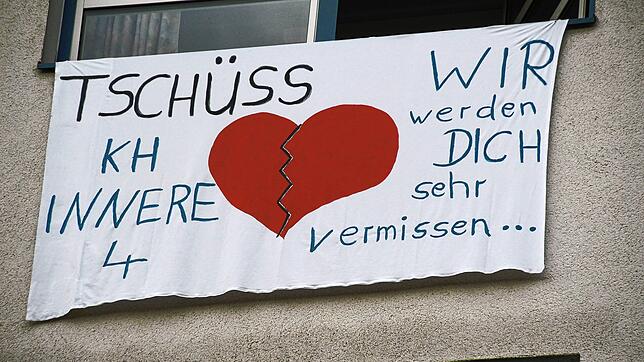 TSCHÜSS
KH
INNERE
4
WIR
werden
DICH
sehr
vermissen...